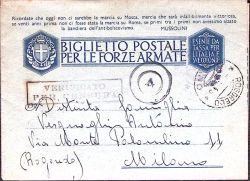 Ricordate che oggi non ci sarebbe la marcia su Mosca, marcia che sarà infallibilmente vittoriosa,
se venti anni prima non ci fosse stata la marcia su Roma, se primi tra i primi non avessimo alzato
la bandiera dell'antibolscevismo.
MUSSOLINI
BIGLIETTO POSTALE
PER LE FORZE ARMATE
ESENTE DA
TASSA PER
L'ITALIA E
VERIFICATO
PER CENSURA
4
Distinta Famiglia
Antonio
Via Monte Palombino 11
Milano